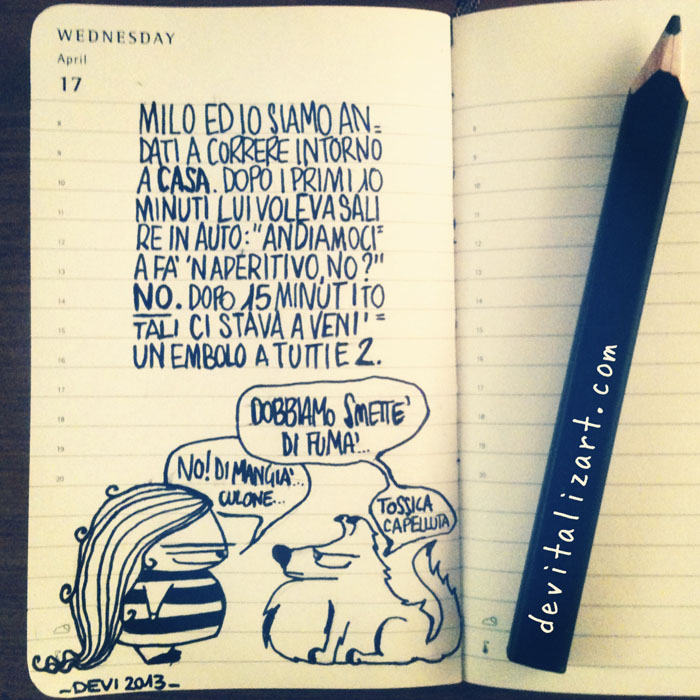 WEDNESDAY
April
17
MILO ED IO SIAMO AN=
DATI A CORRERE INTORNO
A CASA. DOPO I PRIMI 10
MINUTI LUI VOLEVA SALI
RE IN AUTO: "ANDIAMOCI=
A FÀ 'N APERITIVO, NO?"
NO. DOPO 15 MINUTI TO
TALI CI STAVA A VENI' =
UN EMBOLO A TUTTI E 2.
DOBBIAMO SMETTE'
DI FUMA'...
NO! DI MANGIA'...
CULONE...
TOSSICA
CAPELLUTA
-DEVI 2013-
8
9
10
11
12
13
14
15
16
17
18
19
20
devitalizart.com